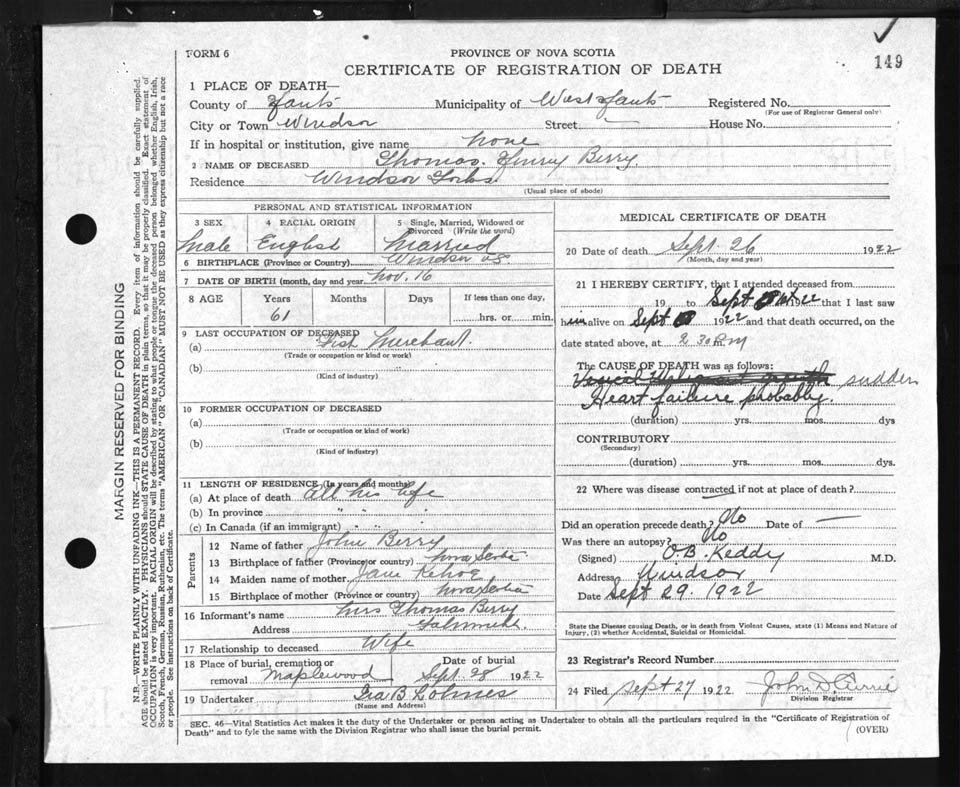 149
FORM 6
PROVINCE OF NOVA SCOTIA
CERTIFICATE OF REGISTRATION OF DEATH
1 PLACE OF DEATH—
County of Hants Municipality of West Hants Registered No.
(For use of Registrar General only)
City or Town Windsor Street — House No.
If in hospital or institution, give name none
2 NAME OF DECEASED Thomas Henry Berry
Residence Windsor Forks
(Usual place of abode)
PERSONAL AND STATISTICAL INFORMATION
3 SEX 4 RACIAL ORIGIN 5 Single, Married, Widowed or Divorced (Write the word)
Male English Married
6 BIRTHPLACE (Province or Country) Windsor NS
7 DATE OF BIRTH (month, day and year) Nov. 16
8 AGE Years Months Days If less than one day,
61 hrs. or min.
9 LAST OCCUPATION OF DECEASED
(a) Fish Merchant.
(Trade or occupation or kind of work)
(b)
(Kind of industry)
10 FORMER OCCUPATION OF DECEASED
(a)
(Trade or occupation or kind of work)
(b)
(Kind of industry)
11 LENGTH OF RESIDENCE (In years and months)
(a) At place of death all his life
(b) In province " " "
(c) In Canada (if an immigrant) " " "
Parents
12 Name of father John Berry
13 Birthplace of father (Province or country) Nova Scotia
14 Maiden name of mother Jane Kehoe
15 Birthplace of mother (Province or country) Nova Scotia
16 Informant's name Mrs Thomas Berry
Address Falmouth
17 Relationship to deceased Wife
18 Place of burial, cremation or removal Maplewood Date of burial Sept. 28 1922
19 Undertaker Ira B Lohnes
(Name and Address)
MEDICAL CERTIFICATE OF DEATH
20 Date of death Sept. 26 1922
(Month, day and year)
21 I HEREBY CERTIFY, that I attended deceased from
19 to Sept 1922 that I last saw
him alive on Sept 1922 and that death occurred, on the
date stated above, at 2 30 PM
The CAUSE OF DEATH was as follows:
sudden
Heart failure probably.
(duration) yrs. mos. dys
CONTRIBUTORY
(Secondary)
(duration) yrs. mos. dys.
22 Where was disease contracted if not at place of death?
Did an operation precede death? No Date of —
Was there an autopsy? No
(Signed) O.B. Keddy M.D.
Address Windsor
Date Sept 29. 1922
State the Disease causing Death, or in death from Violent Causes, state (1) Means and Nature of
Injury, (2) whether Accidental, Suicidal or Homicidal.
23 Registrar's Record Number
24 Filed Sept 27 1922 John D Currie
Division Registrar
SEC. 46—Vital Statistics Act makes it the duty of the Undertaker or person acting as Undertaker to obtain all the particulars required in the "Certificate of Registration of
Death" and to fyle the same with the Division Registrar who shall issue the burial permit.
(OVER)
MARGIN RESERVED FOR BINDING
N.B.—WRITE PLAINLY WITH UNFADING INK—THIS IS A PERMANENT RECORD. Every item of information should be carefully supplied.
AGE should be stated EXACTLY. PHYSICIANS should STATE CAUSE OF DEATH in plain terms, so that it may be properly classified. Exact statement of
OCCUPATION is very important. RACIAL ORIGIN will be described by stating to what people or tongue the deceased person belonged whether English, Irish,
Scotch, French, German, Russian, Ruthenian, etc. The terms "AMERICAN" or "CANADIAN" MUST NOT BE USED as they express citizenship but not a race
or people. See instructions on back of Certificate.